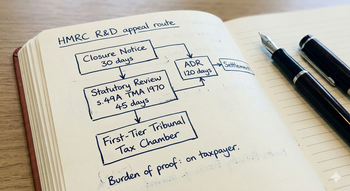 HMRC R&D appeal route
Closure Notice
30 days
Statutory Review
s.49A TMA 1970
45 days
First-Tier Tribunal
Tax Chamber
ADR
120 days
Settlement
Burden of proof: on taxpayer.